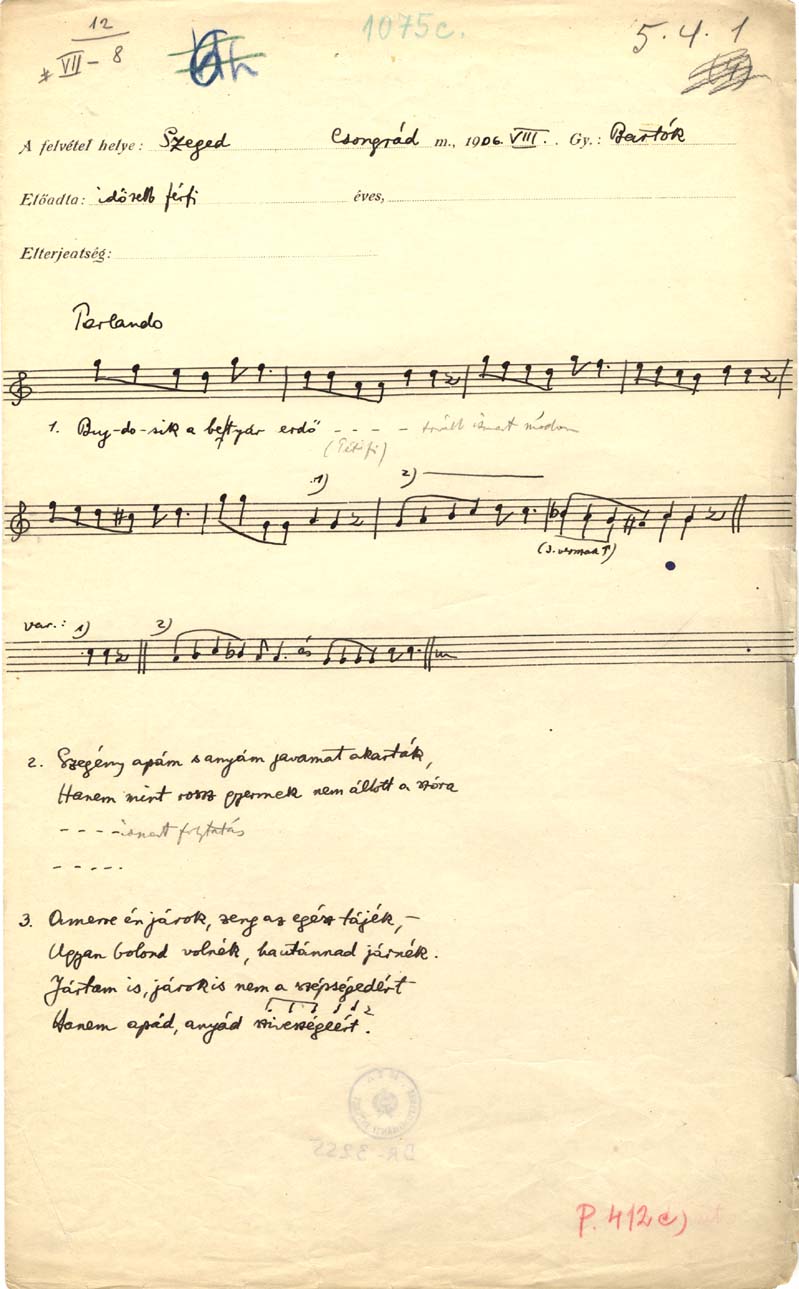 12
VII - 8
1075c.
5. 4. 1
A felvétel helye: Szeged Csongrád m., 1906. VIII. Gy.: Bartók
Előadta: idősebb férfi éves,
Elterjeatség:
Parlando
1. Buj-do-sik a betyár erdő - - - - tovább ismert módon
(Petőfi)
1) 2)
(3. versnad)
var.: 1) 2) és
2. Szegény apám s anyám javamat akarták,
Hanem mint rossz gyermek nem állott a szóra
- - - - ismert folytatás
- - - - .
3. Amerre én járok, zeng az egész tájék, -
Ugyan bolond volnék, ha utánnad járnék.
Jártam is, járok is nem a szépségedért
Hanem apád, anyád szivességeért.
DR-3255
P. 412 c)